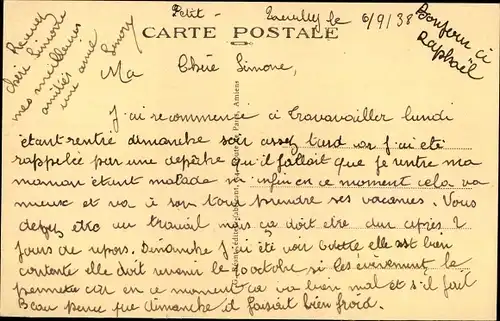 Petit-
le 6/9/38
Bonjour à
Raphaël
CARTE POSTALE
Recevez
chère Simone
mes meilleures
amitiés
une amie
Simone
Ma Chère Simone,
J'ai recommencé à travavailler lundi
étant rentré dimanche soir assez tard car j'ai été
rappelée par une depêche qu'il fallait que je rentre ma
maman étant malade enfin en ce moment celà va
mieux et va à son tour prendre ses vacances. Vous
devez etre au travail mais ça doit etre dur après 2
jours de repos. Dimanche j'ai été voir Odette elle est bien
contente elle doit revenir le 10 octobre si les évènement le
permette car en ce moment ca va bien mal et s'il fait
Beau parce que dimanche il faisait bien froid.
Paris, Amiens